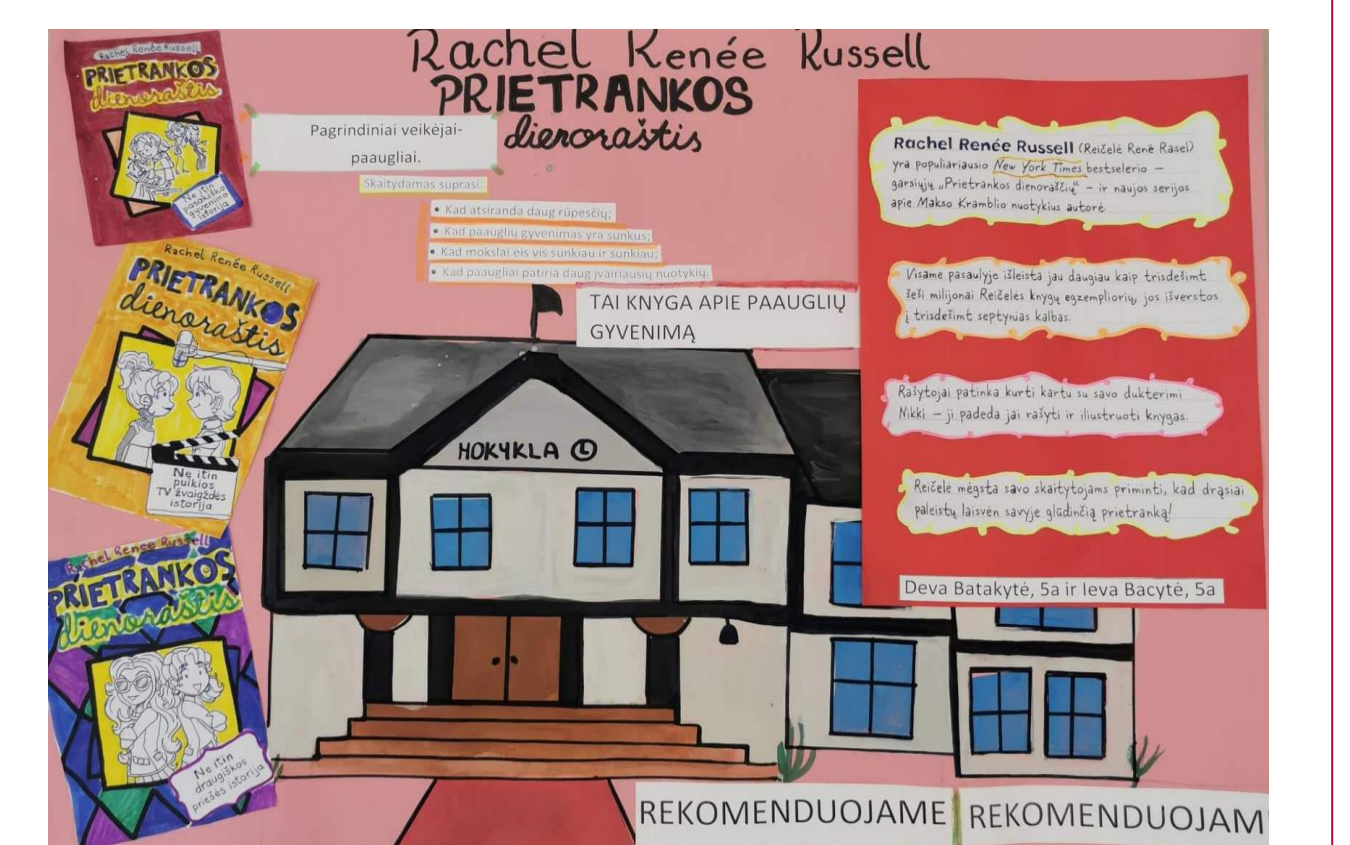 Rachel Renée Russell
PRIETRANKOS
dienoraštis
Rachel Renée Russell
PRIETRANKOS
dienoraštis
Ne itin
pasakiško
gyvenimo
istorija
Pagrindiniai veikėjai-
paaugliai.
Skaitydamas suprasi:
• Kad atsiranda daug rūpesčių;
• Kad paauglių gyvenimas yra sunkus;
• Kad mokslai eis vis sunkiau ir sunkiau;
• Kad paaugliai patiria daug įvairiausių nuotykių.
TAI KNYGA APIE PAAUGLIŲ
GYVENIMĄ
Rachel Renée Russell
PRIETRANKOS
dienoraštis
Ne itin
puikios
TV žvaigždės
istorija
Rachel Renee Russell
PRIETRANKOS
dienoraštis
Ne itin
draugiškos
priešės istorija
MOKYKLA
Rachel Renée Russell (Reičelė Renė Rasel)
yra populiariausio New York Times bestselerio –
garsiųjų „Prietrankos dienoraščių“ – ir naujos serijos
apie Makso Kramblio nuotykius autorė.
Visame pasaulyje išleista jau daugiau kaip trisdešimt
šeši milijonai Reičelės knygų egzempliorių, jos išverstos
į trisdešimt septynias kalbas.
Rašytojai patinka kurti kartu su savo dukterimi
Nikki – ji padeda jai rašyti ir iliustruoti knygas.
Reičelė mėgsta savo skaitytojams priminti, kad drąsiai
paleistų laisvėn savyje glūdinčią prietranką!
Deva Batakytė, 5a ir Ieva Bacytė, 5a
REKOMENDUOJAME
REKOMENDUOJAM